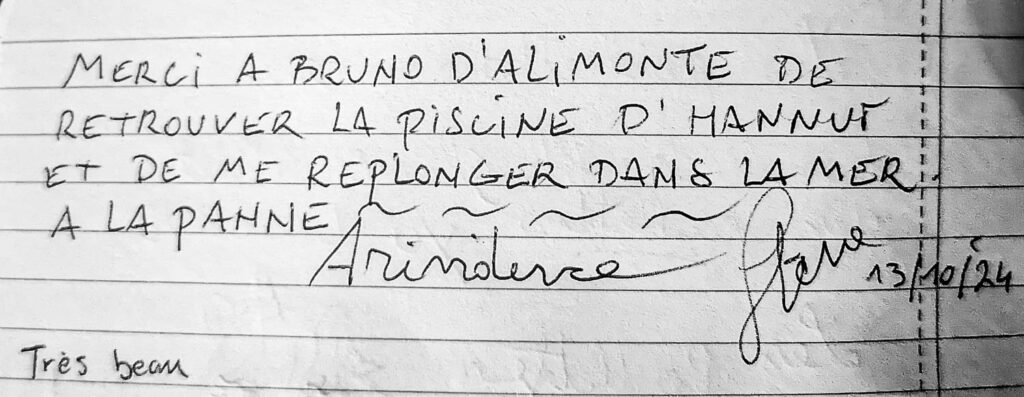 MERCI A BRUNO D'ALIMONTE DE
RETROUVER LA PISCINE D'HANNUT
ET DE ME REPLONGER DANS LA MER
A LA PANNE
13/10/24
Très beau